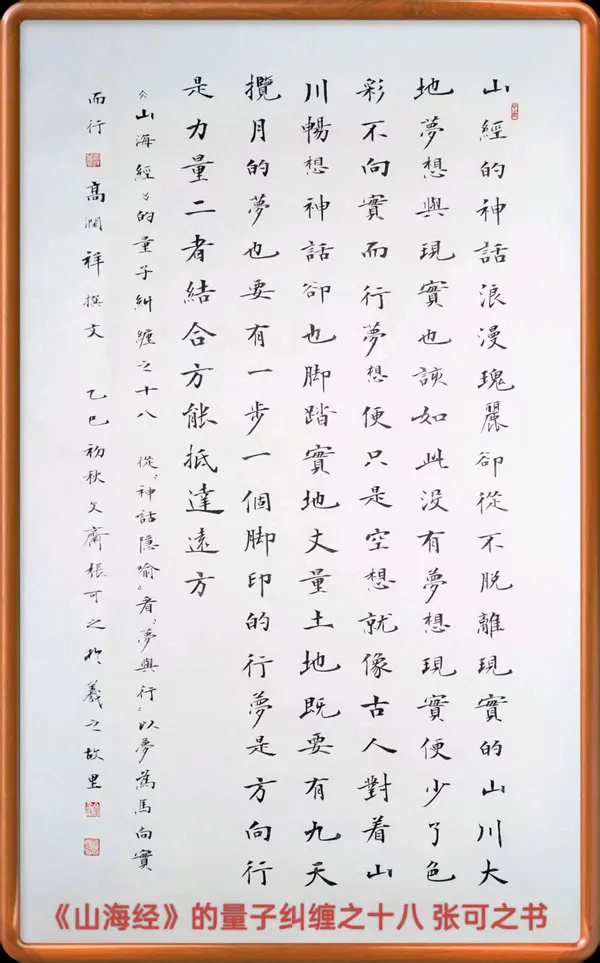 山經的神話浪漫瑰麗卻從不脱離現實的山川大
地夢想與現實也該如此没有夢想現實便少了色
彩不向實而行夢想便只是空想就像古人對着山
川暢想神話卻也脚踏實地丈量土地既要有九天
攬月的夢也要有一步一個脚印的行夢是方向行
是力量二者結合方能抵達遠方
《山海經》的量子糾纏之十八 從“神話隐喻”看“夢與行”以夢爲馬向實
而行 高潤祥撰文 乙巳初秋文齋張可之於羲之故里
《山海经》的量子纠缠之十八 张可之书